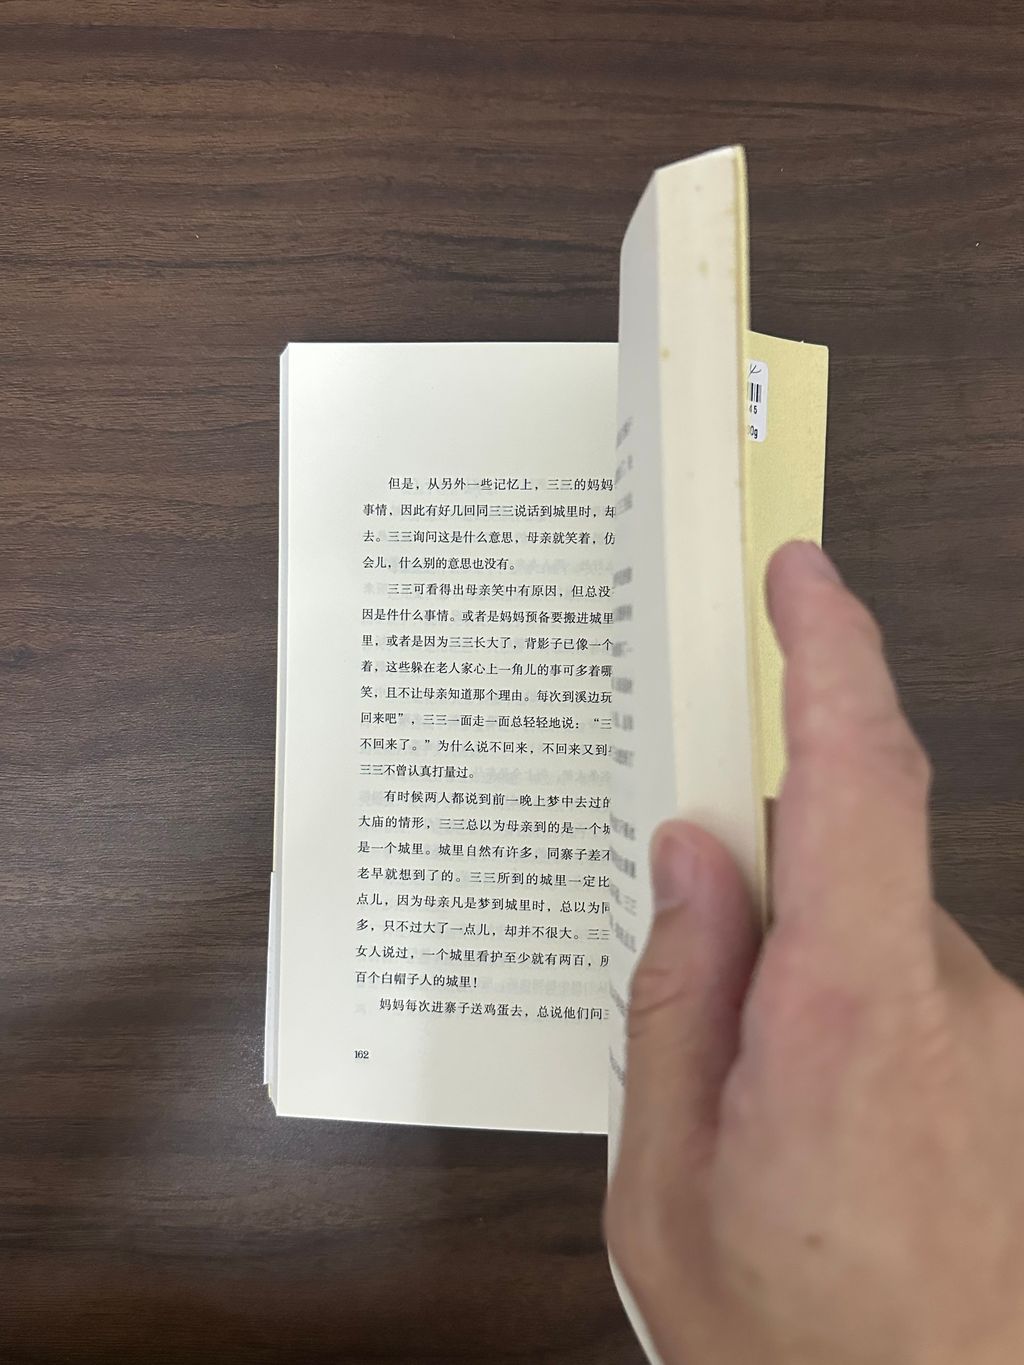 但是，从另外一些记忆上，三三的妈妈
事情，因此有好几回同三三说话到城里时，却
去。三三询问这是什么意思，母亲就笑着，仿
会儿，什么别的意思也没有。
三三可看得出母亲笑中有原因，但总没
因是件什么事情。或者是妈妈预备要搬进城里
里，或者是因为三三长大了，背影子已像一个
着，这些躲在老人家心上一角儿的事可多着哪
笑，且不让母亲知道那个理由。每次到溪边玩
回来吧”，三三一面走一面总轻轻地说：“三
不回来了。”为什么说不回来，不回来又到
三三不曾认真打量过。
有时候两人都说到前一晚上梦中去过的
大庙的情形，三三总以为母亲到的是一个城
是一个城里。城里自然有许多，同寨子差不
老早就想到了的。三三所到的城里一定比
点儿，因为母亲凡是梦到城里时，总以为同
多，只不过大了一点儿，却并不很大。三三
女人说过，一个城里看护至少就有两百，所
百个白帽子人的城里！
妈妈每次进寨子送鸡蛋去，总说他们问三
162
45
0g